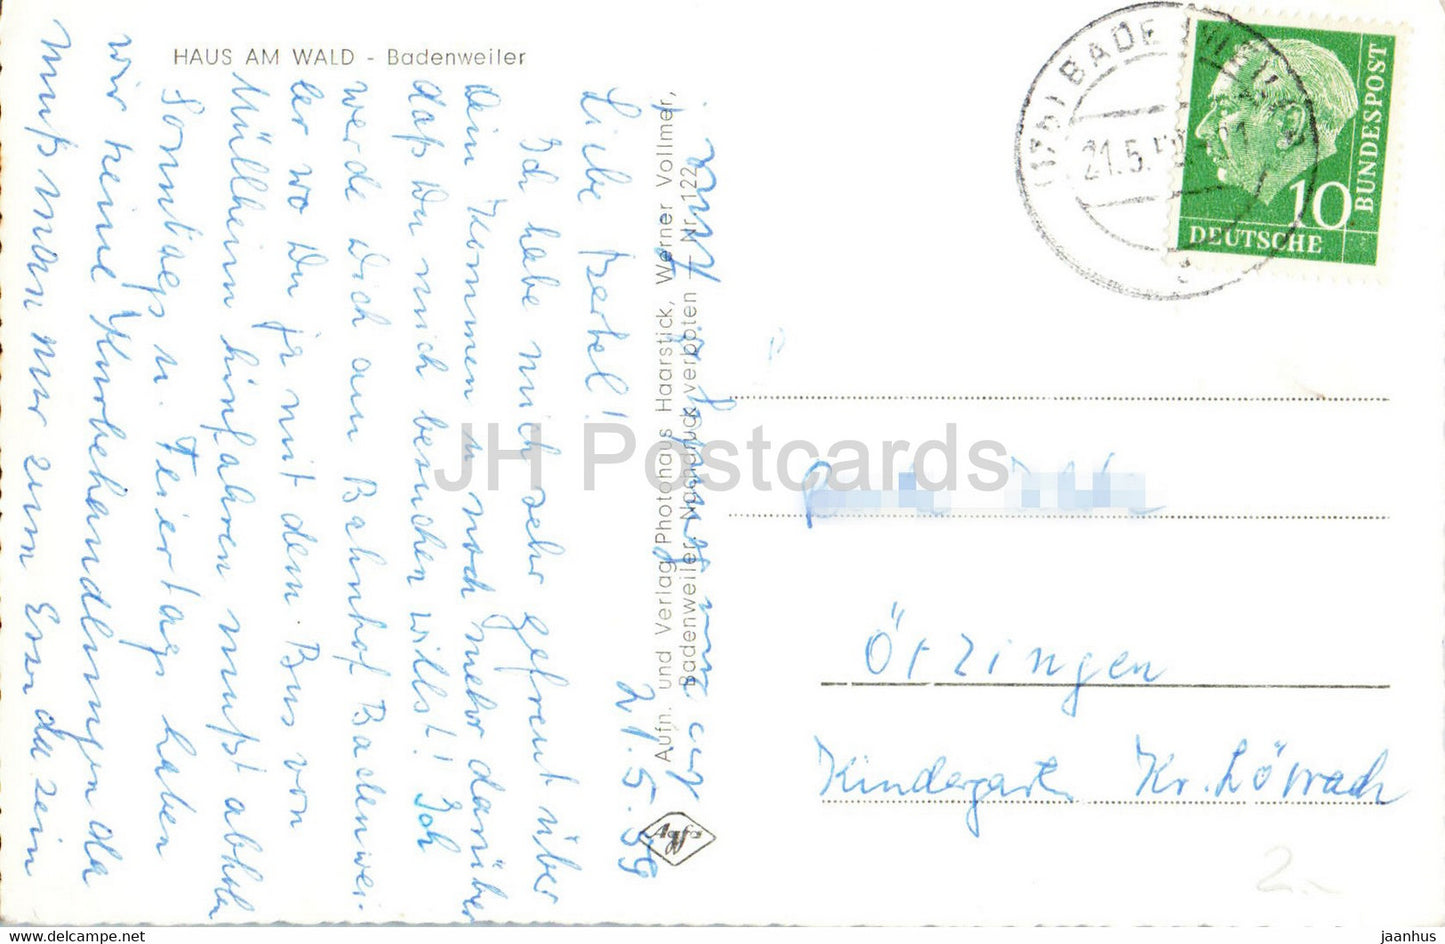 HAUS AM WALD - Badenweiler
21.5.59
Liebe Bertel!
Ich habe mich sehr gefreut über
dein Kommen u. noch mehr darüber
daß Du mich besuchen willst! Ich
werde Dich am Bahnhof Badenwei-
ler wo Du ja mit dem Bus von
Müllheim hinfahren mußt abholen
Sonntags u. Feiertags haben
wir keine Kurbehandlungen da
muß man nur zum Essen da sein
Aufn. und Verlag Photohaus Haarstick, Werner Vollmer,
Badenweiler, Nachdruck verboten — Nr. 122
Agfa
(17b) BADENWEILER
21.5.59
10
DEUTSCHE
BUNDESPOST
Ötzingen
Kindergarten Kr. Lörrach
JH Postcards
jaanhus.com
jaanhus